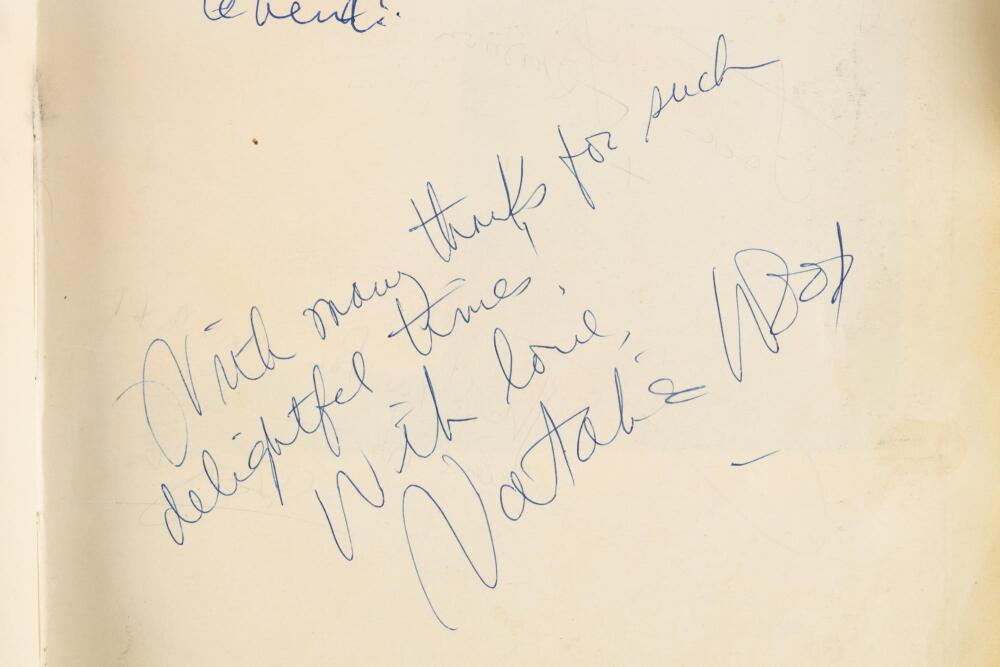 With many thanks for such
delightful times.
With love,
Natalie Wood